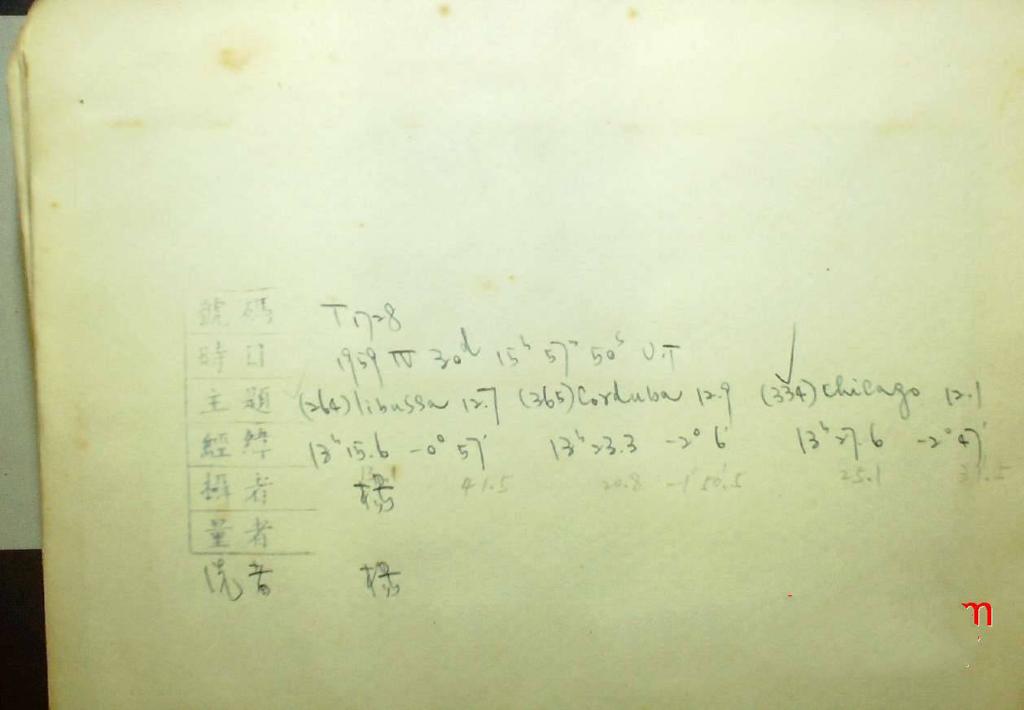 號碼 T1728
時日 1959 IV 30d 15h 57m 50s U.T
主題 (264)libussa 12.7 (365)Corduba 12.9 (334)Chicago 12.1
經緯 13h15.6 -0° 57' 13h23.3 -2° 6' 13h27.6 -2° 47'
攝者 楊 41.5 20.8 -1°50.5 25.1
量者
洗者 楊
m